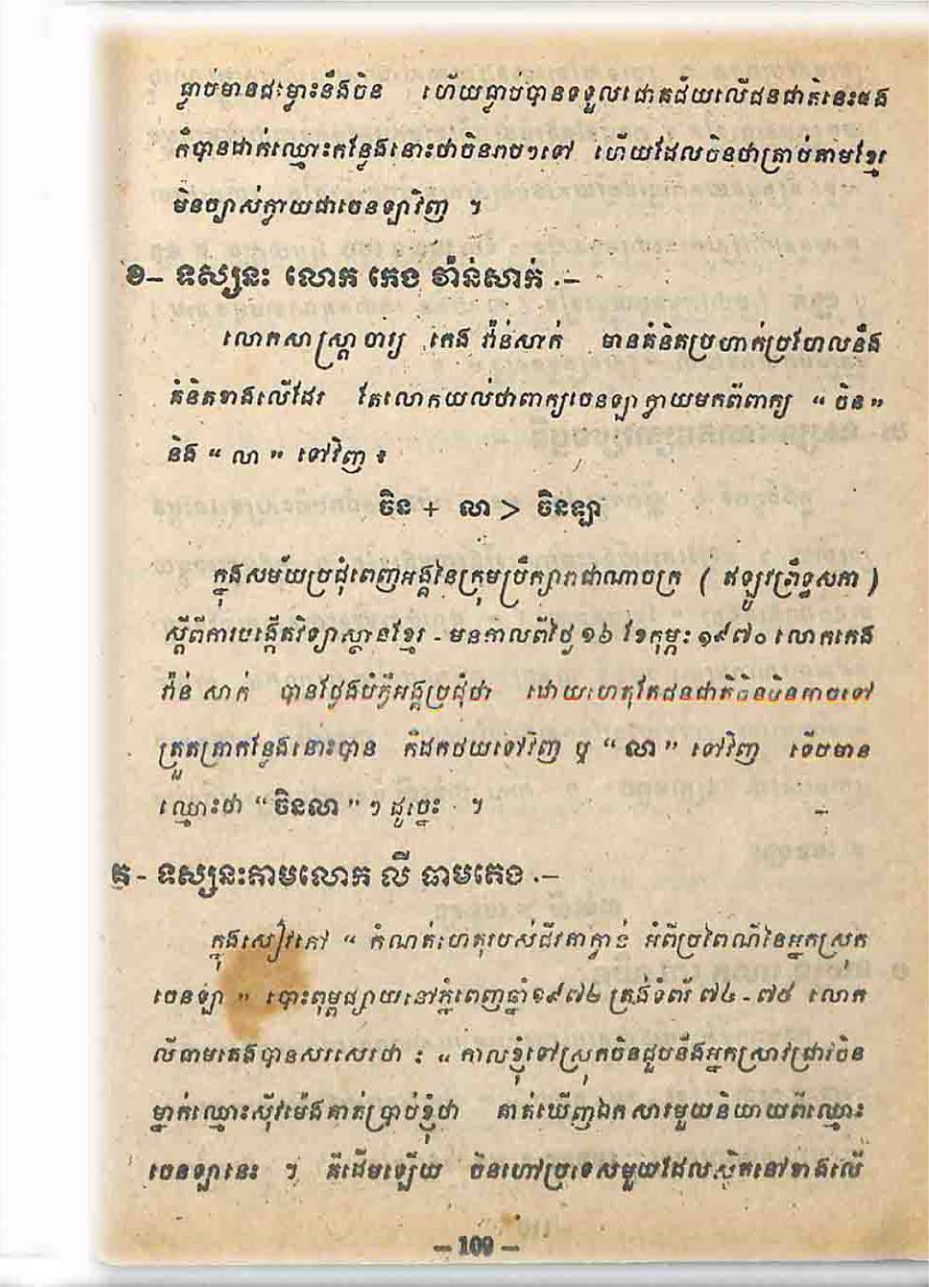 ធ្លាប់មានជម្លោះនឹងចិន ហើយធ្លាប់បានទទួលជោគជ័យលើជនជាតិនេះផង
ក៏បានដាក់ឈ្មោះកន្លែងនោះថាចិនរាបៗទៅ ហើយដែលចិនថាត្រាប់តាមខ្មែរ
មិនច្បាស់ក្លាយជាចេនឡាវិញ ។
ខ- ទស្សនះ លោក កេង វ៉ាន់សាក់ .-
លោកសាស្ត្រាចារ្យ កេង វ៉ាន់សាក់ មានគំនិតប្រហាក់ប្រហែលនឹង
គំនិតខាងលើដែរ តែលោកយល់ថាពាក្យចេនឡាក្លាយមកពីពាក្យ “ ចិន ”
និង “ លា ” ទៅវិញ ៖
ចិន + លា > ចិនឡា
ក្នុងសម័យប្រជុំពេញអង្គនៃក្រុមប្រឹក្សារាជាណាចក្រ ( ឥឡូវព្រឹទ្ធសភា )
ស្តីពីការបង្កើតវិទ្យាស្ថានខ្មែរ - មនកាលពីថ្ងៃ ១៦ ខែកុម្ភះ ១៩៧០ លោកកេង
វ៉ាន់ សាក់ បានថ្លែងបំភ្លឺអង្គប្រជុំថា ដោយហេតុតែជនជាតិចិនមិនអាចទៅ
ត្រួតត្រាកន្លែងនោះបាន ក៏ដកថយទៅវិញ ឬ “ លា ” ទៅវិញ ទើបមាន
ឈ្មោះថា “ ចិនលា ” ៗ ដូច្នេះ ។
គ - ទស្សនះតាមលោក លី ធាមតេង .-
ក្នុងសៀវភៅ “ កំណត់ហេតុរបស់ជីវតាក្វាន់ អំពីប្រពៃណីនៃអ្នកស្រុក
ចេនឡា ” បោះពុម្ពផ្សាយនៅភ្នំពេញឆ្នាំ១៩៧២ ត្រង់ទំព័រ ៧៤ - ៧៥ លោក
លីធាមតេងបានសរសេរថា : “ កាលខ្ញុំទៅស្រុកចិនជួបនឹងអ្នកស្រាវជ្រាវចិន
ម្នាក់ឈ្មោះស៊ីវម៉េងគាត់ប្រាប់ខ្ញុំថា គាត់ឃើញឯកសារមួយនិយាយពីឈ្មោះ
ចេនឡានេះ ។ គឺដើមឡើយ ចិនហៅប្រទេសមួយដែលស្ថិតនៅខាងលើ
- 109 -